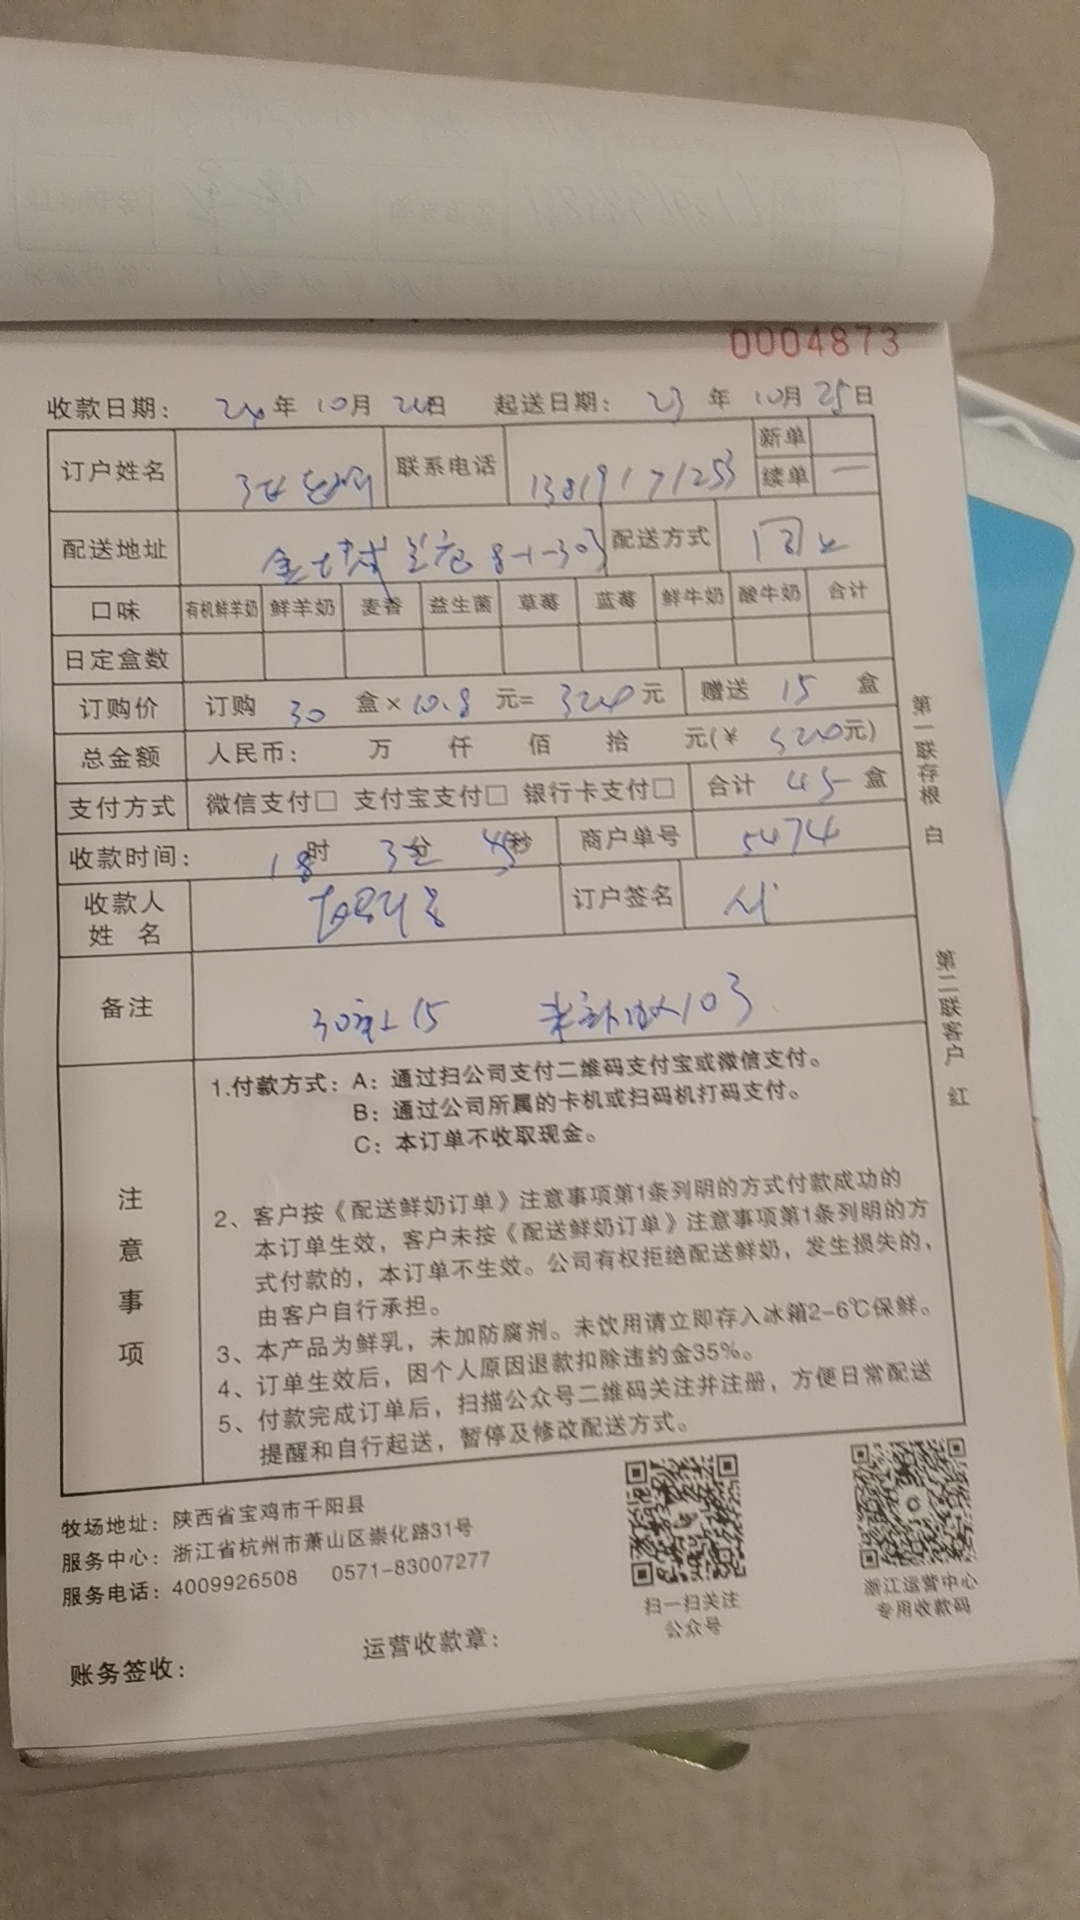 0004873
收款日期： 24年 10月 24日 起送日期： 23 年 10月 25日
订户姓名 联系电话 13819171253 新单
续单 一
配送地址 8-1-303 配送方式
口味 有机鲜羊奶 鲜羊奶 麦香 益生菌 草莓 蓝莓 鲜牛奶 酸牛奶 合计
日定盒数
订购价 订购 30 盒×10.8 元= 324元 赠送 15 盒
总金额 人民币： 万 仟 佰 拾 元(¥ 324元)
支付方式 微信支付□ 支付宝支付□ 银行卡支付□ 合计 45 盒
收款时间： 18时 3分 45秒 商户单号 5474
收款人
姓 名
订户签名
备注 30 15 103
注意事项
1.付款方式：A：通过扫公司支付二维码支付宝或微信支付。
B：通过公司所属的卡机或扫码机打码支付。
C：本订单不收取现金。
2、客户按《配送鲜奶订单》注意事项第1条列明的方式付款成功的
本订单生效，客户未按《配送鲜奶订单》注意事项第1条列明的方
式付款的，本订单不生效。公司有权拒绝配送鲜奶，发生损失的，
由客户自行承担。
3、本产品为鲜乳，未加防腐剂。未饮用请立即存入冰箱2-6℃保鲜。
4、订单生效后，因个人原因退款扣除违约金35%。
5、付款完成订单后，扫描公众号二维码关注并注册，方便日常配送
提醒和自行起送，暂停及修改配送方式。
第一联存根 白
第二联客户 红
牧场地址：陕西省宝鸡市千阳县
服务中心：浙江省杭州市萧山区崇化路31号
服务电话：4009926508 0571-83007277
扫一扫关注
公众号
浙江运营中心
专用收款码
账务签收： 运营收款章：